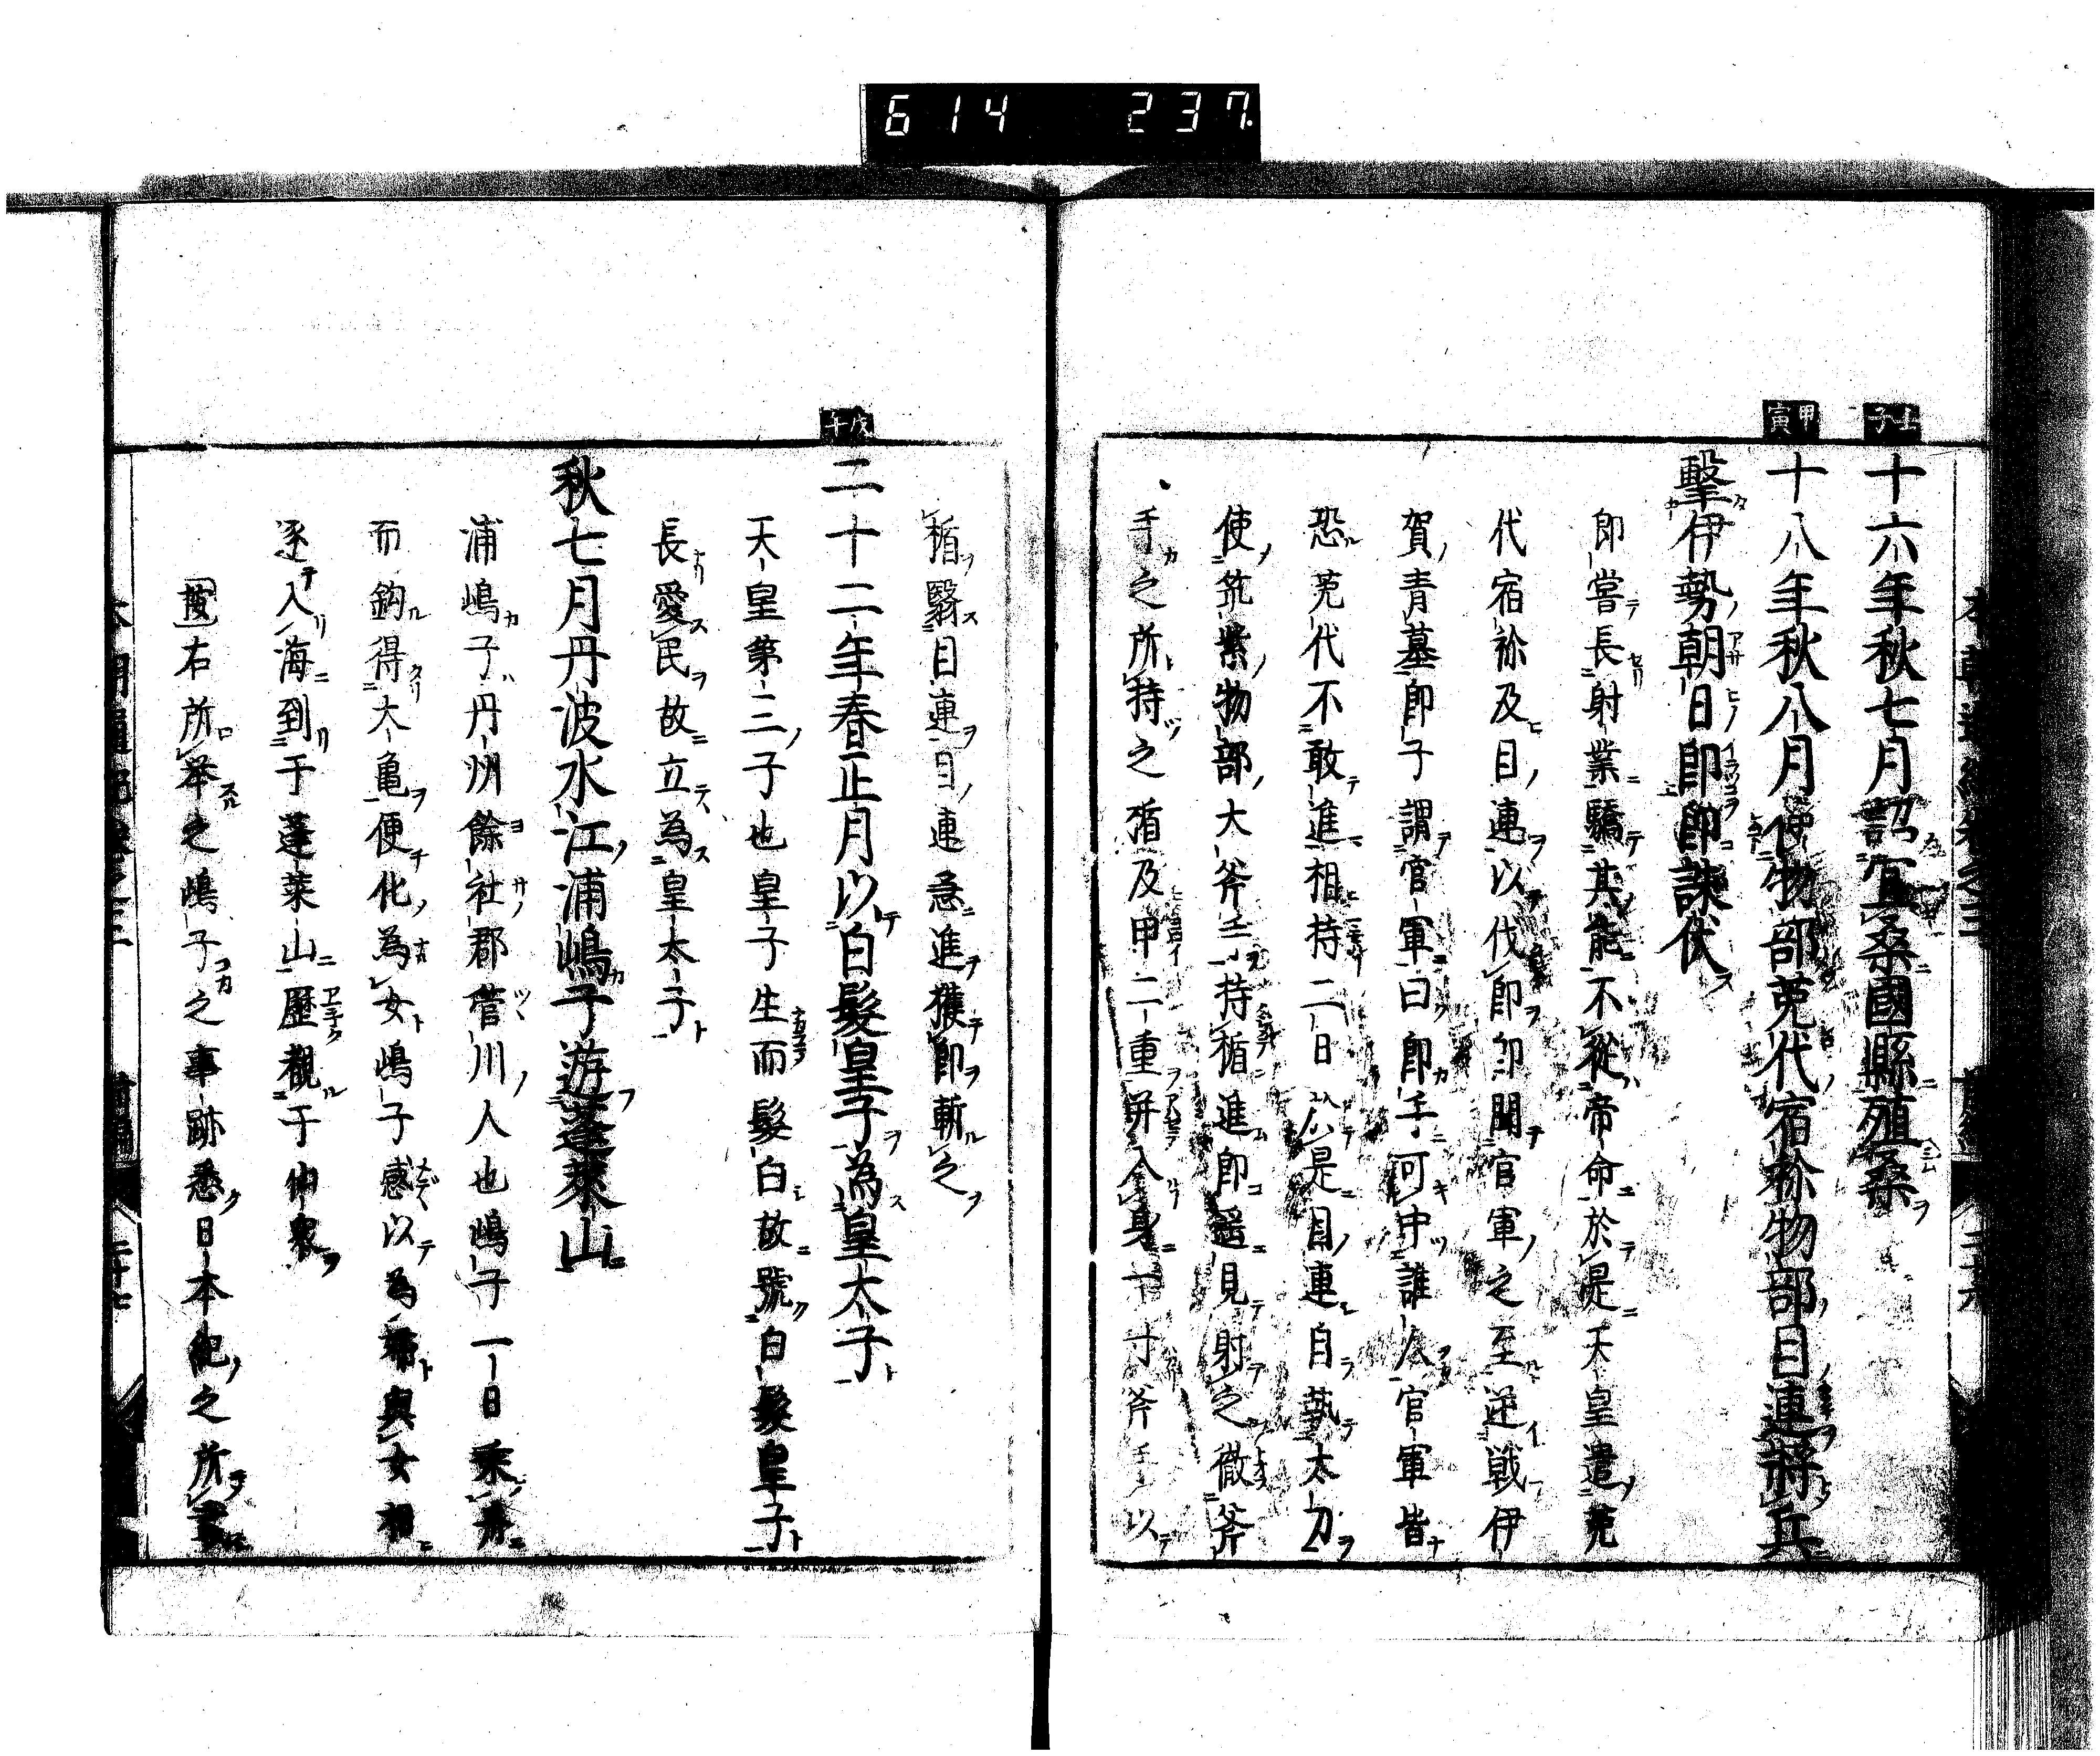 614 237
壬子
十六年秋七月詔宜桑國縣殖桑
甲寅
十八年秋八月使物部莵代宿祢物部目連將兵
擊伊勢朝日郎郎誅伏
郎嘗長射業驕其能不從帝命於是天皇遣莵
代宿祢及目連以伐郎郎聞官軍之至逆戦伊
賀青墓郎子謂官軍曰郎手可中誰人官軍皆
恐莵代不敢進相持二日於是目連自執太刀
使筑紫物部大斧手持楯進郎遥見射之徹斧
手之所持之楯及甲二重并入身一寸斧手以
楯翳目連目連急進獲郎斬之
戊午
二十二年春正月以白髮皇子為皇太子
天皇第三子也皇子生而髮白故號白髮皇子
長愛民故立為皇太子
秋七月丹波水江浦嶋子遊蓬莱山
浦嶋子丹州餘社郡菅川人也嶋子一日乗舟
而釣得大亀便化為女嶋子感以為婦與女相
逐入海到于蓬莱山歴覩于仙衆
按右所举之嶋子之事跡悉日本紀之所
本朝通紀巻之三 前編 二十七